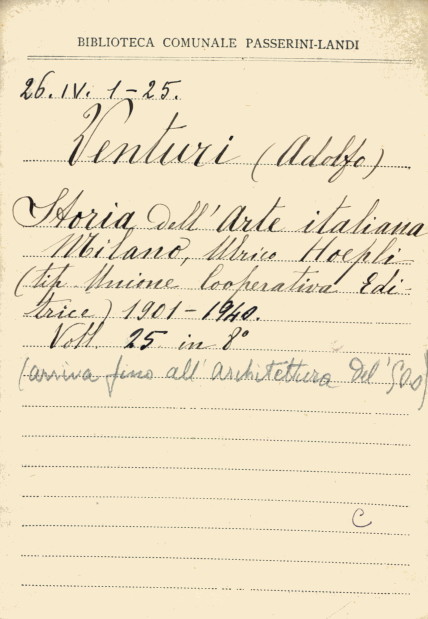 BIBLIOTECA COMUNALE PASSERINI-LANDI
26.IV. 1-25.
Venturi (Adolfo)
Storia dell'Arte italiana
Milano, Ulrico Hoepli
(tip. Unione Cooperativa Edi-
trice) 1901-1940.
Voll. 25 in 8°
(arriva fino all'architettura del'500)
C